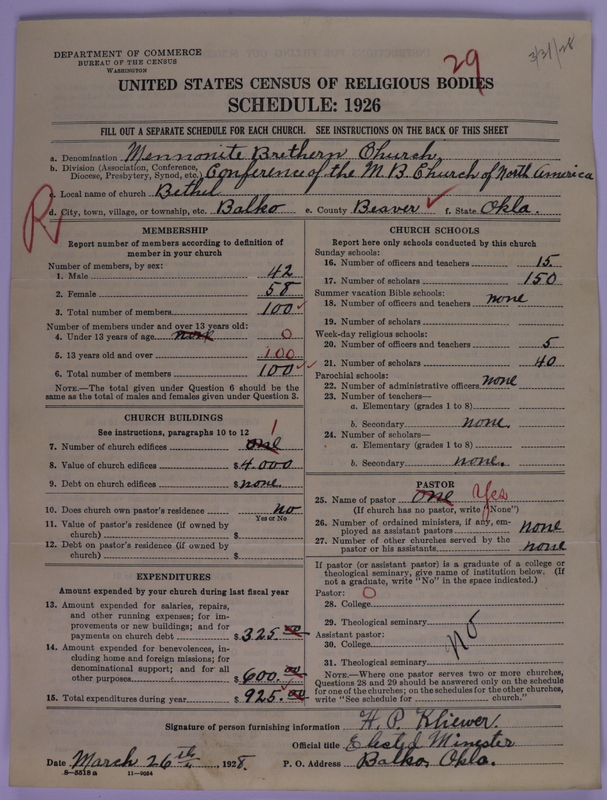 DEPARTMENT OF COMMERCE
BUREAU OF THE CENSUS
WASHINGTON
29
3/31/28
UNITED STATES CENSUS OF RELIGIOUS BODIES
SCHEDULE: 1926
FILL OUT A SEPARATE SCHEDULE FOR EACH CHURCH. SEE INSTRUCTIONS ON THE BACK OF THIS SHEET
a. Denomination Mennonite Brethern Church,
b. Division (Association, Conference, Diocese, Presbytery, Synod, etc.) Conference of the M.B. Church of North America
c. Local name of church Bethel
R
d. City, town, village, or township, etc. Balko e. County Beaver f. State Okla.
MEMBERSHIP
Report number of members according to definition of
member in your church
Number of members, by sex:
1. Male 42
2. Female 58
3. Total number of members 100
Number of members under and over 13 years old:
4. Under 13 years of age none 0
5. 13 years old and over 100
6. Total number of members 100
NOTE.—The total given under Question 6 should be the
same as the total of males and females given under Question 3.
CHURCH BUILDINGS
See instructions, paragraphs 10 to 12
7. Number of church edifices one 1
8. Value of church edifices $4.000
9. Debt on church edifices $none.
10. Does church own pastor's residence no
Yes or No
11. Value of pastor's residence (if owned by
church) $
12. Debt on pastor's residence (if owned by
church) $
EXPENDITURES
Amount expended by your church during last fiscal year
13. Amount expended for salaries, repairs,
and other running expenses; for im-
provements or new buildings; and for
payments on church debt $325.00
14. Amount expended for benevolences, in-
cluding home and foreign missions; for
denominational support; and for all
other purposes $600.00
15. Total expenditures during year $925.00
CHURCH SCHOOLS
Report here only schools conducted by this church
Sunday schools:
16. Number of officers and teachers 15
17. Number of scholars 150
Summer vacation Bible schools:
18. Number of officers and teachers none
19. Number of scholars
Week-day religious schools:
20. Number of officers and teachers 5
21. Number of scholars 40
Parochial schools:
22. Number of administrative officers none
23. Number of teachers—
a. Elementary (grades 1 to 8)
b. Secondary none.
24. Number of scholars—
a. Elementary (grades 1 to 8)
b. Secondary none.
PASTOR
25. Name of pastor one Yes
(If church has no pastor, write "None")
26. Number of ordained ministers, if any, em-
ployed as assistant pastors none
27. Number of other churches served by the
pastor or his assistants none
If pastor (or assistant pastor) is a graduate of a college or
theological seminary, give name of institution below. (If
not a graduate, write "No" in the space indicated.)
Pastor: 0
28. College
29. Theological seminary
Assistant pastor: no
30. College
31. Theological seminary
NOTE.—Where one pastor serves two or more churches,
Questions 28 and 29 should be answered only on the schedule
for one of the churches; on the schedules for the other churches,
write "See schedule for church."
Signature of person furnishing information H. P. Kliewer
Official title Elected Minester
Date March 26th, 1928. P. O. Address Balko, Okla.
8-5518 a 11-9064